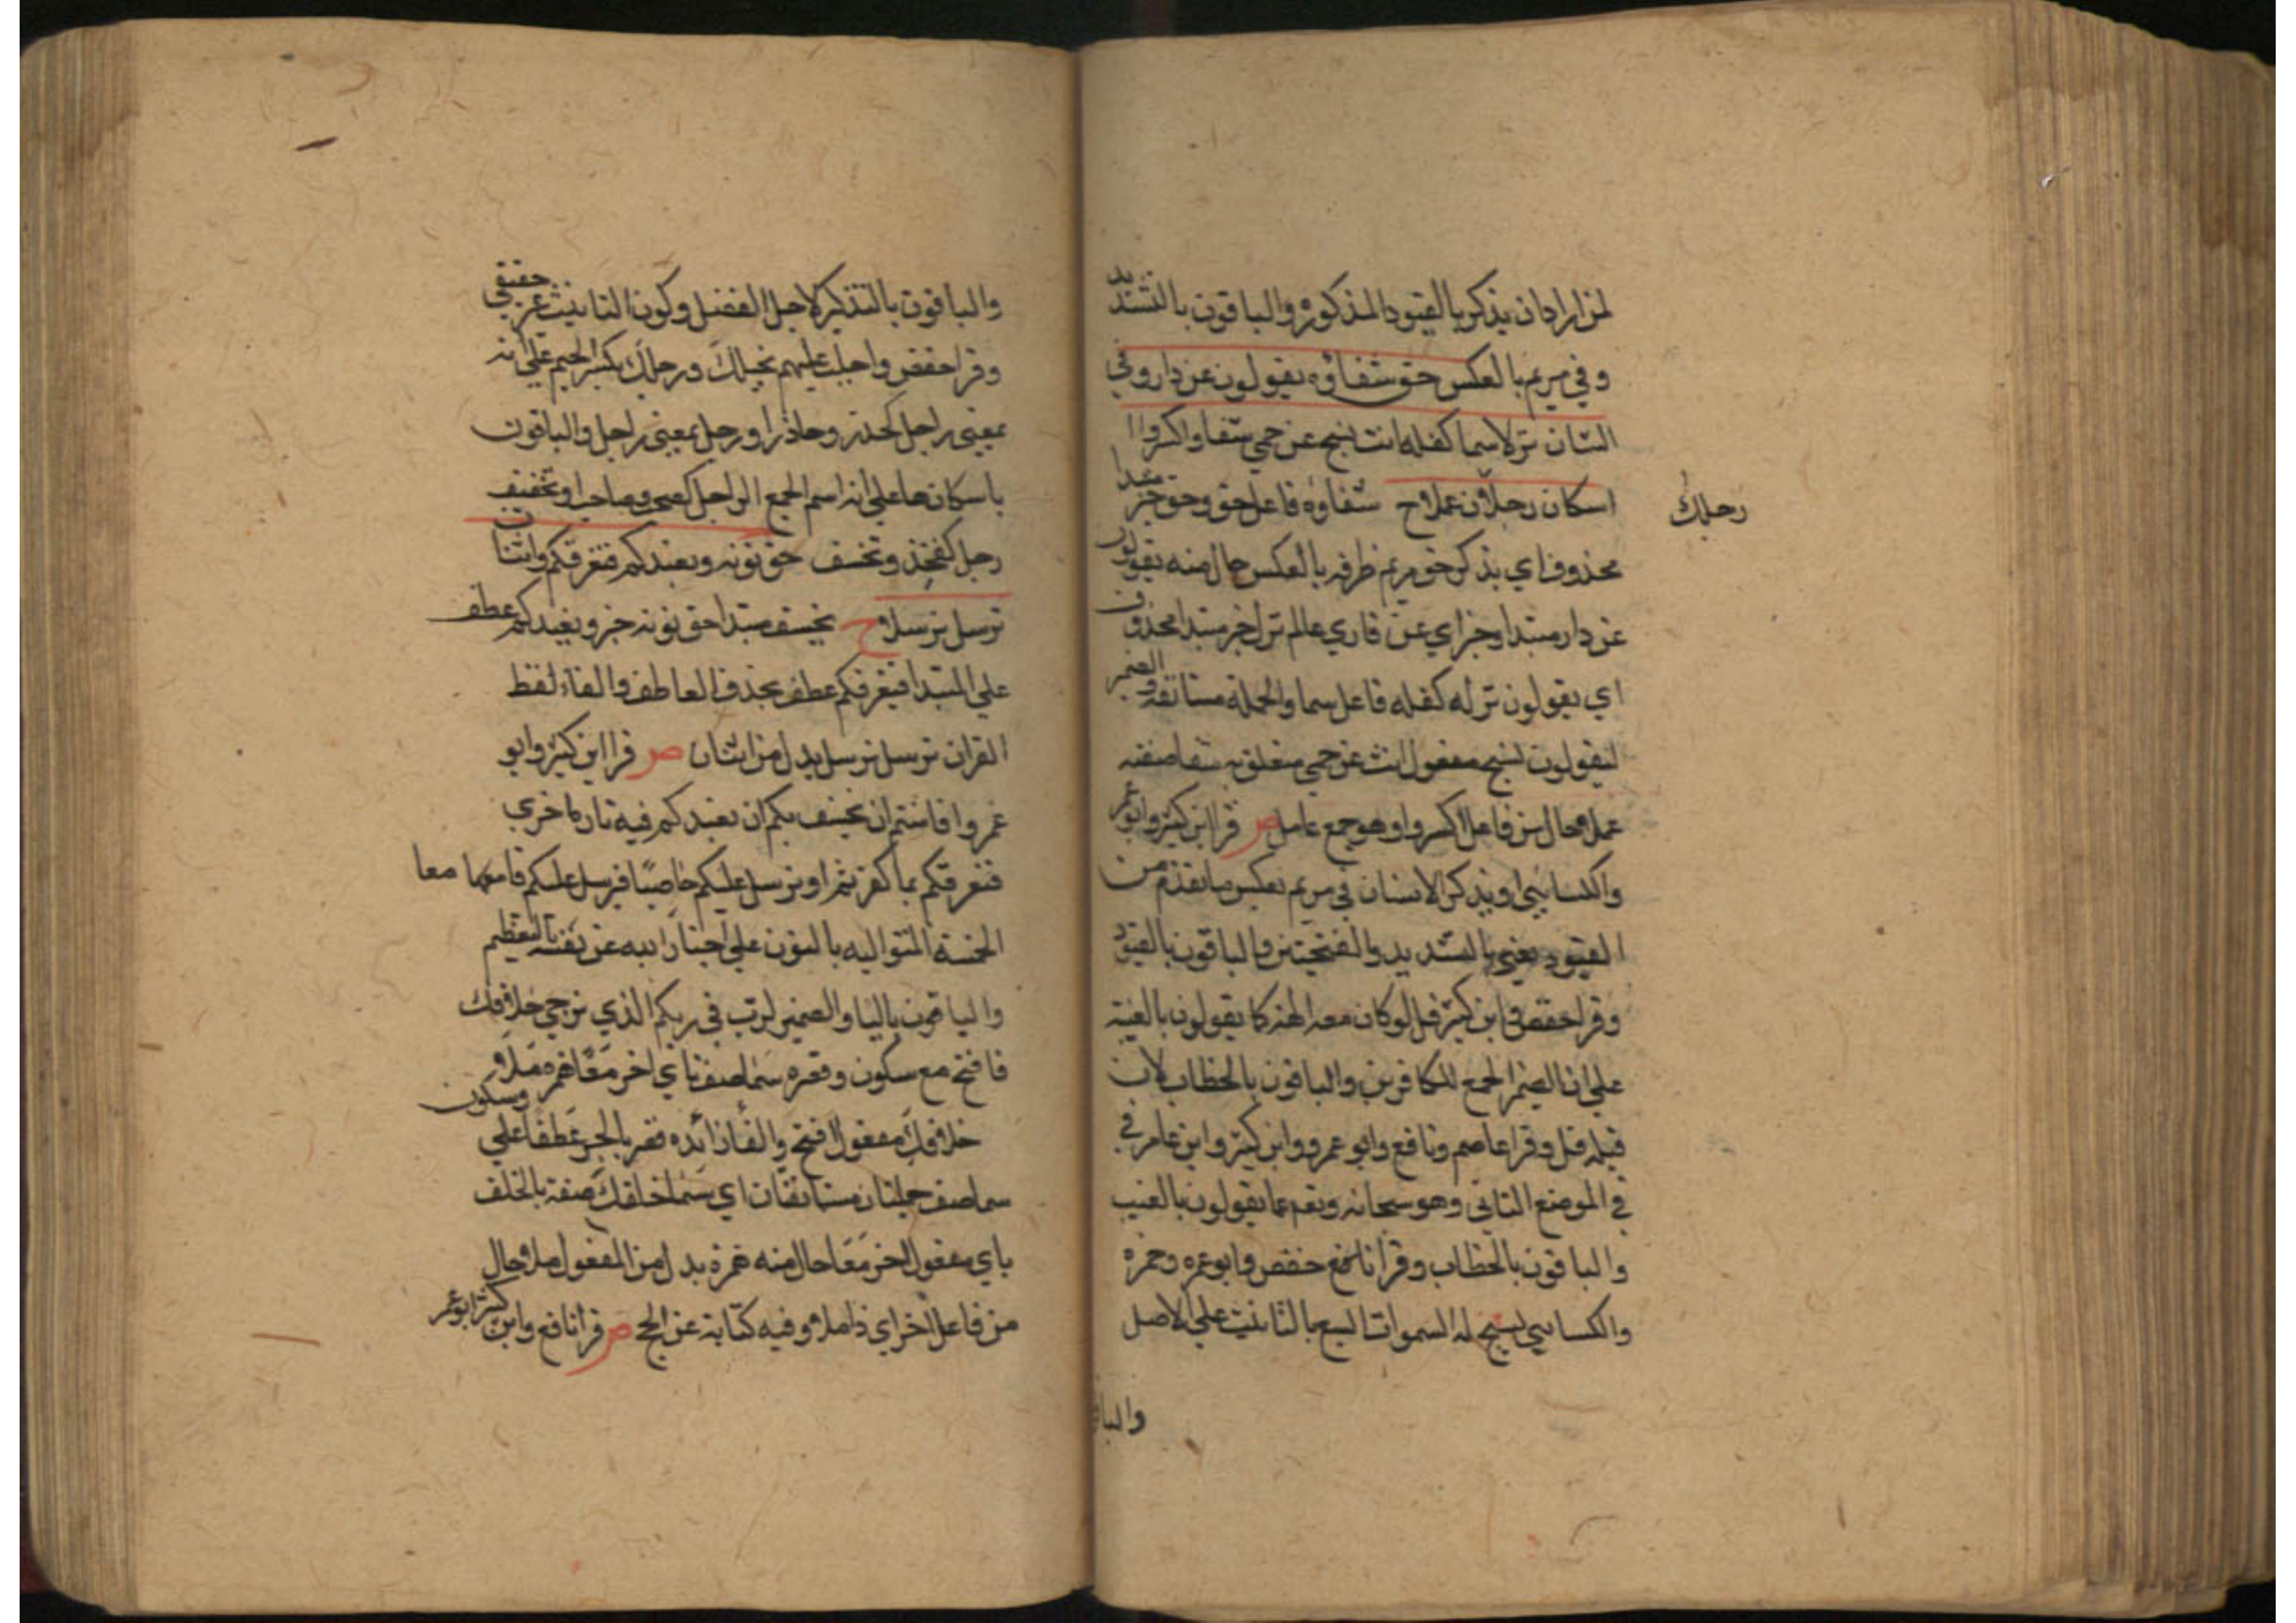 لمن اراد ان يذكر بالقيود المذكوره والباقون بالتشديد
وفي مريم بالعكس حق شفاؤه يقولون عن دار وفي
الثان نزلا سما كفله انث يسبح عن حمي شفا واكسروا
اسكان رجلك عملا ح شفاوه فاعل حق وحق خبر مبتدا
رجلك
محذوف اي يذكر حق مريم ظرفه بالعكس حال منه يقولون
عن دار مبتدا وخبر اي عن قاري عالم نزلا خبر مبتدا محذوف
اي يقولون نزله كفله فاعل سما والجمله مستانفه والضمير
ليقولون يسبح مفعول انث عن حمي متعلق به شفا صفته
عملا حال من فاعل اكسروا وهو جمع عامل ص قرا ابن كثير وابو عمر
والكسائي او يذكر الانسان في مريم بعكس ما تقدم من
القيود يعني بالتشديد والفتحتين والباقون بالقيود
وقرا حفص وابن كثير قل لو كان معه الهه كما يقولون بالغيبه
علي ان الضمير الجمع للكافرين والباقون بالخطاب لان
قبله قل وقرا عاصم ونافع وابو عمرو وابن كثير وابن عامر في
في الموضع الثاني وهو سبحانه وتعم عما يقولون بالغيب
والباقون بالخطاب وقرا نافع حفص وابو عمره وحمزه
والكسايي يسبح له السموات السبع بالتانيث علي الاصل
والبا
والباقون بالتذكير لاجل الفصل وكون التانيث غير حقيقي
وقرا حفص واجلب عليهم بخيلك ورجلك بكسر الجيم علي انه
بمعني راجل كحذر وحاذر او رجل بمعني راجل والباقون
باسكانها علي انه اسم الجمع الراجل كصحب وصاحب او تخفيف
رجل كفخذ وتخسف حق نونه ونعيدكم فنغرقكم واثنان
نرسل نرسلا ح نخسف مبتدا حق نونه خبر ونعيدكم عطف
علي المبتدا فنغرقكم عطف بحذف العاطف والفاء لفظ
القران نرسل نرسل بدل من اثنان ص قرا ابن كثير وابو
عمرو افامنتم ان نخسف بكم ان نعيدكم فيه تارة اخري
فنغرقكم بما كفرتم او نرسل عليكم حاصبا فنرسل عليكم قاصفا معا
الخمسة المتواليه بالنون علي اخبار الله عن نفسه بالتعظيم
والباقون باليا والضمير لرب في ربكم الذي يزجي خلافك
فافتح مع سكون وقصره سما صف ناي اخر معا همزه ملا و
خلافك مفعول افتح والفا زائده قصر بالجر عطفا علي وسكون
سما صف جملتان مستانفتان اي سما خلفك صفة بالخلف
باي مفعول اخر معا حال منه همزه بدل من المفعول ملا حال
من فاعل اخر اي ذا ملا وفيه كناية عن الحج ص قرا نافع وابن كثير ابو عمر